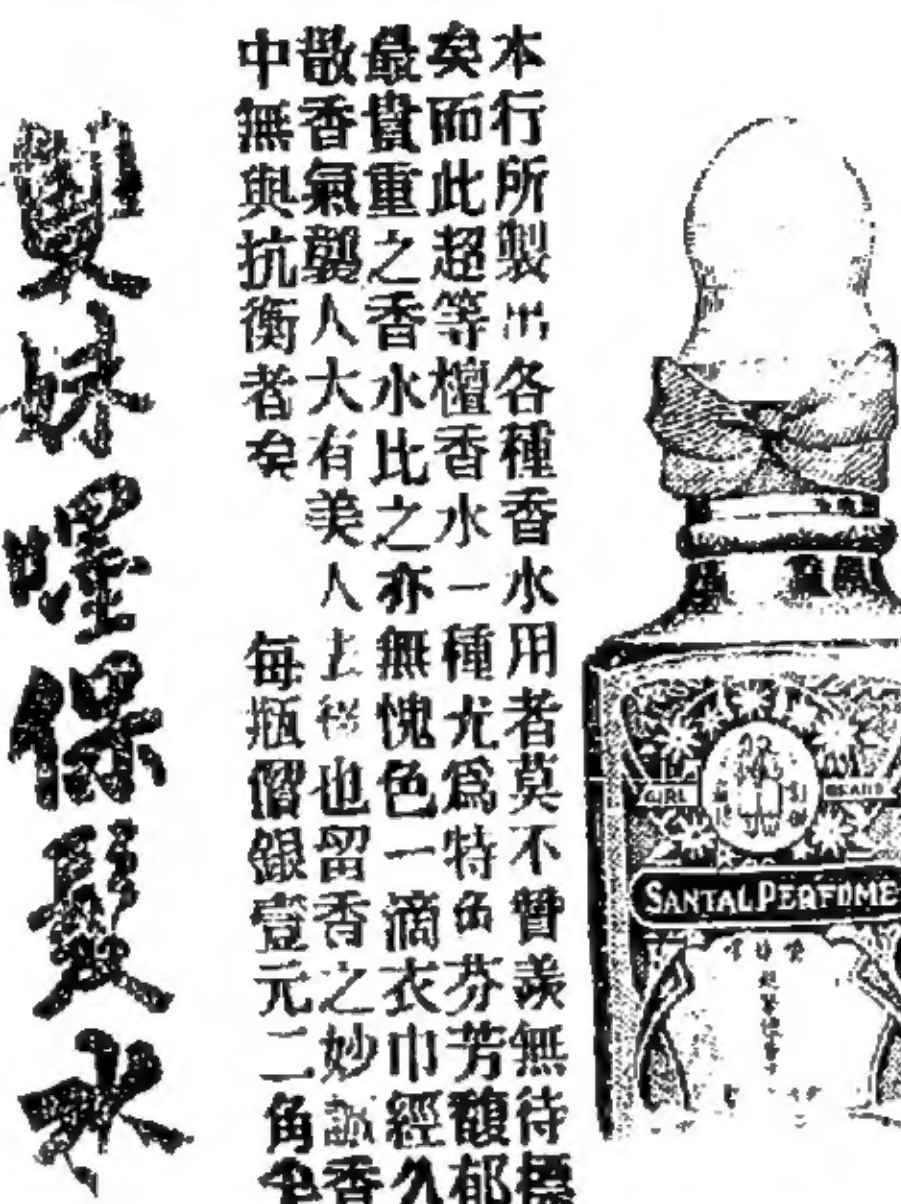 本行所製出各種香水用者莫不贊羨無待標
矣而此超等檀香水一種尤爲特色芬芳馥郁
最貴重之香水比之亦無愧色一滴衣巾經久
散香氣襲人大有美人也留香之妙誠香
中無與抗衡者矣 每瓶價銀壹元二角半
雙妹嚜保髮水
GIRL BRAND
SANTAL PERFUME